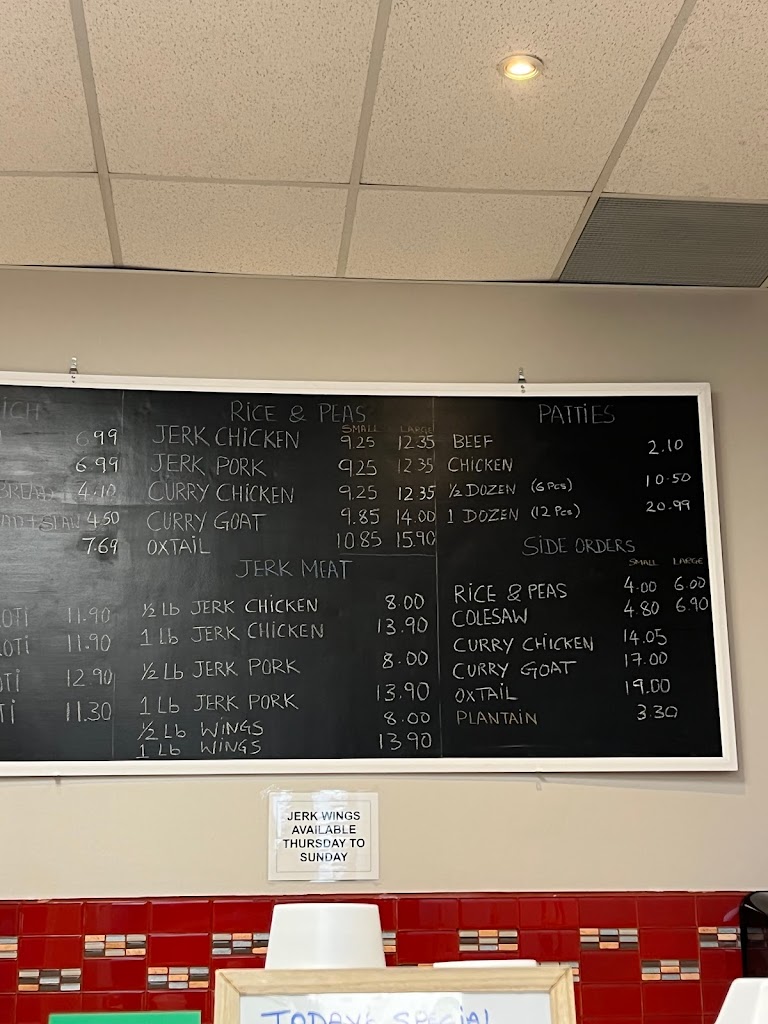 ICH
6.99
6.99
BREAD 4.10
SLAW 4.50
7.69
OTI 11.90
OTI 11.90
OTI 12.90
TI 11.30
RICE & PEAS
SMALL LARGE
JERK CHICKEN 9.25 12.35
JERK PORK 9.25 12.35
CURRY CHICKEN 9.25 12.35
CURRY GOAT 9.85 14.00
OXTAIL 10.85 15.90
JERK MEAT
1/2 Lb JERK CHICKEN 8.00
1 Lb JERK CHICKEN 13.90
1/2 Lb JERK PORK 8.00
1 Lb JERK PORK 13.90
1/2 Lb WINGS 8.00
1 Lb WINGS 13.90
PATTIES
BEEF 2.10
CHICKEN
1/2 DOZEN (6 Pcs) 10.50
1 DOZEN (12 Pcs) 20.99
SIDE ORDERS
SMALL LARGE
RICE & PEAS 4.00 6.00
COLESAW 4.80 6.90
CURRY CHICKEN 14.05
CURRY GOAT 17.00
OXTAIL 19.00
PLANTAIN 3.30
JERK WINGS
AVAILABLE
THURSDAY TO
SUNDAY
TODAY'S SPECIAL